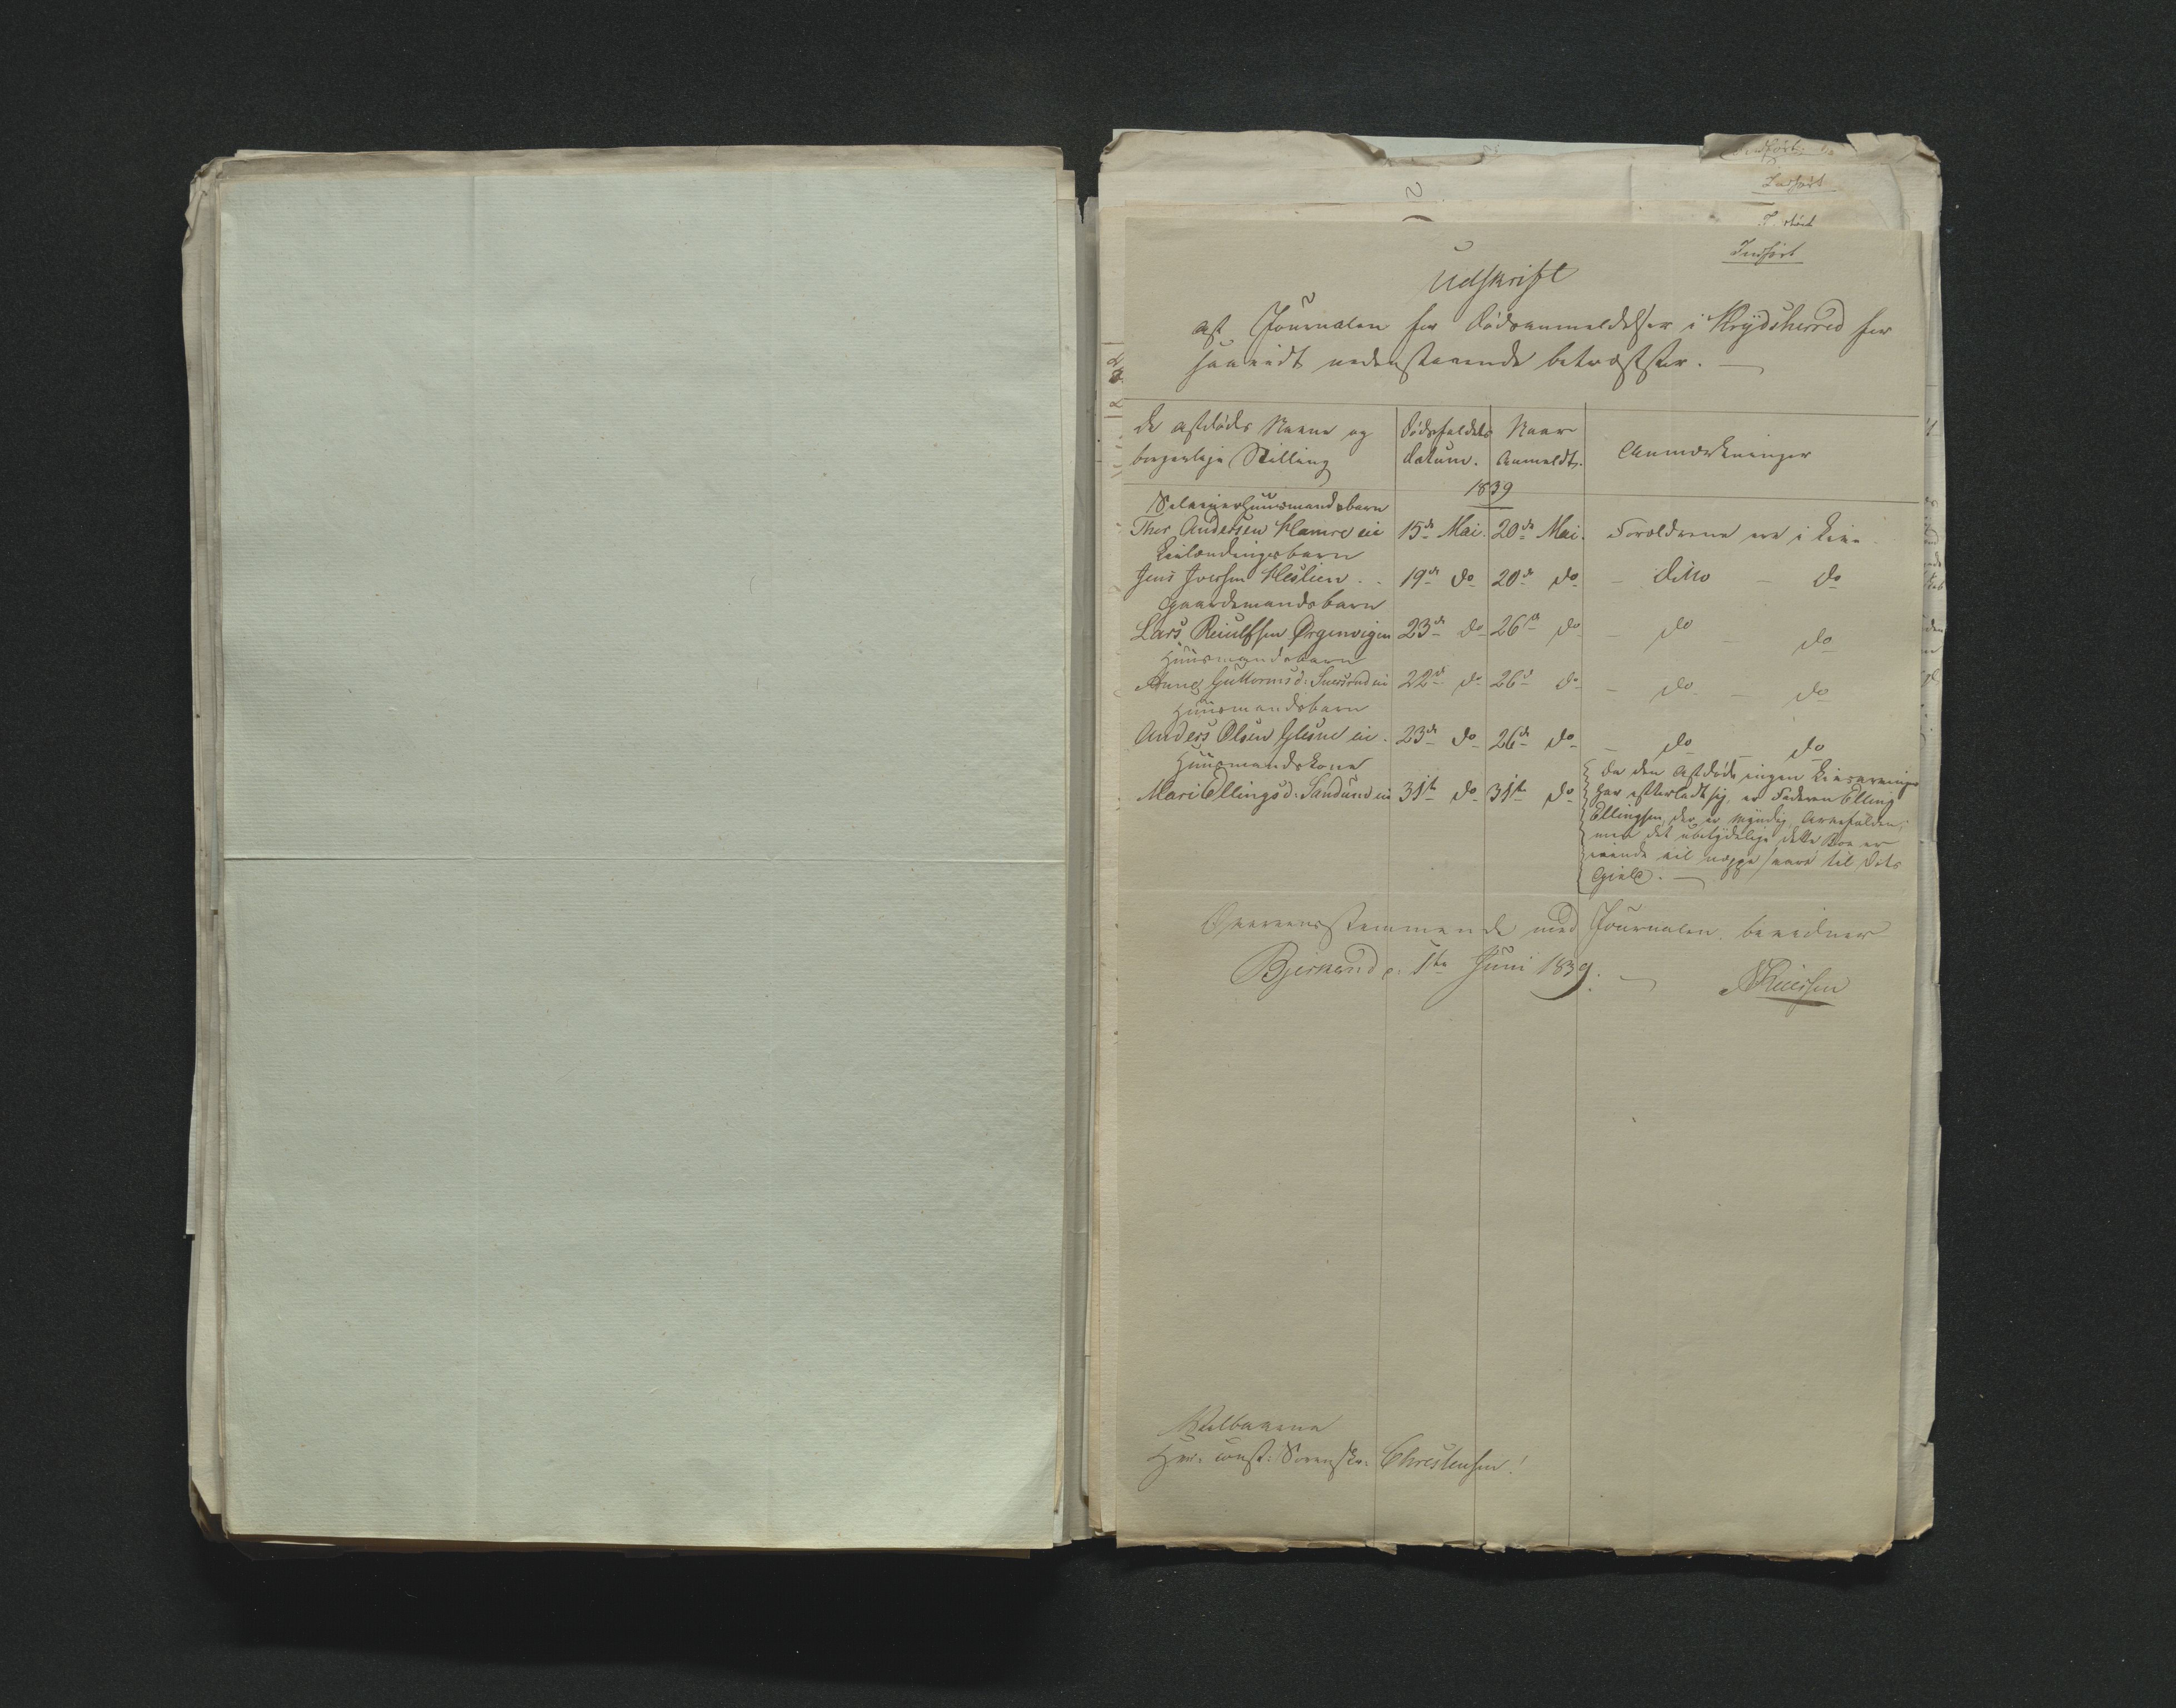 Indført
Indført
Udskrift
af Journalen for Dødsanmeldelser i Krydsherred for
saavidt nedenstaaende betræffer. —
De afdødes Navne og borgerlige Stilling | Dødsfaldets Datum. | Naar Anmeldt. | Anmærkninger
1839
Selveierhuusmandsbarn
Thor Andersen Hamre eie | 15de Mai. | 20de Mai. | Forældrene ere i Live.
Inderstbarn
Jens Iversen Heslien . . | 19de do | 20de do | – ditto – do
Gaardmandsbarn
Lars Reiulfsen Ørgenvigen | 23de do | 26de do | – do – do
Huusmandsbarn
Anne Guttormsd: eie | 22de do | 26de do | – do – do
Huusmandsbarn
Anders Olsen Glesne eie. | 23de do | 26de do | – do – do
Huusmandskone
Mari Ellingsd: Sandum eie | 31te do | 31te do | Da den Afdøde ingen Livsarvinger
har efterladt sig, er Faderen Elling
Ellingsen, der er myndig, Arvefalden;
men det ubetydelige dette Boe er
eiende vil neppe svare til dets
Gjeld. —
Overeensstemmende med Journalen bevidner
Bjerkerud d. 1te Juni 1839. —
Velbaarne
Hr. const: Sorenskr. Christensen!